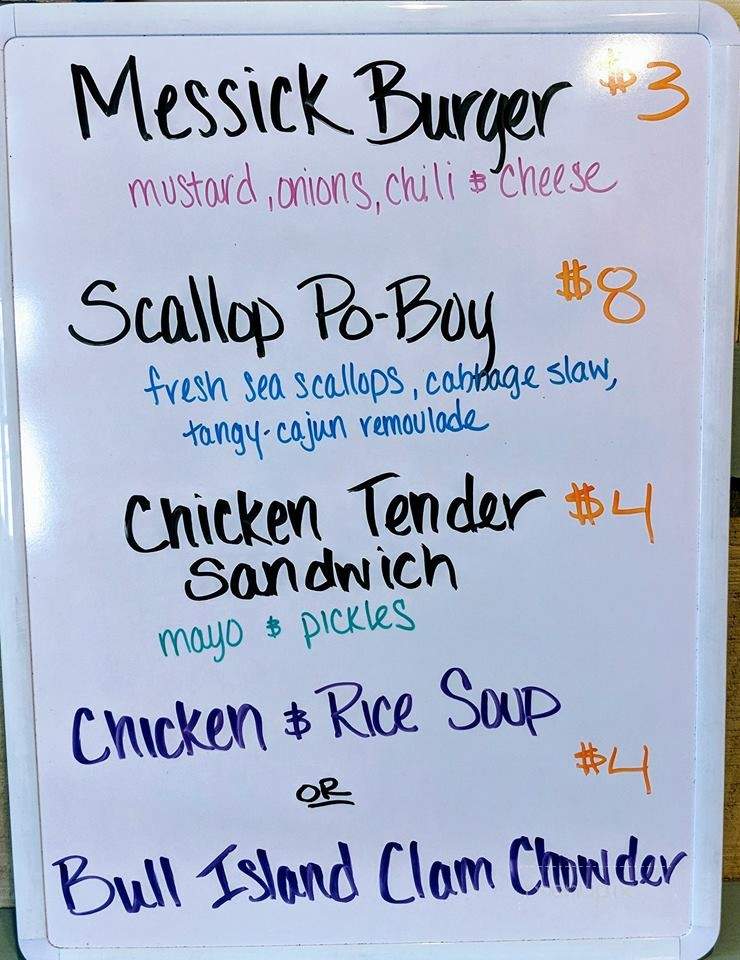 Messick Burger $3
mustard, onions, chili & cheese
Scallop Po-Boy $8
fresh sea scallops, cabbage slaw,
tangy-cajun remoulade
Chicken Tender $4
Sandwich
mayo & pickles
Chicken & Rice Soup
$4
OR
Bull Island Clam Chowder